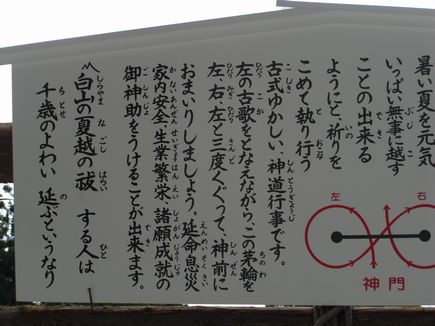 暑い夏を元気
いっぱい無事に越す
ことの出来る
ようにと、祈りを
こめて執り行う
古式ゆかしい、神道行事です。
左の古歌をとなえながら、この茅輪を
左、右、左と三度くぐって、神前に
おまいりしましょう。延命息災
家内安全 生業繁栄 諸願成就の
御神助をうけることが出来ます。
白山の夏越の祓 する人は
千歳のよわい 延ぶというなり
左
右
神門